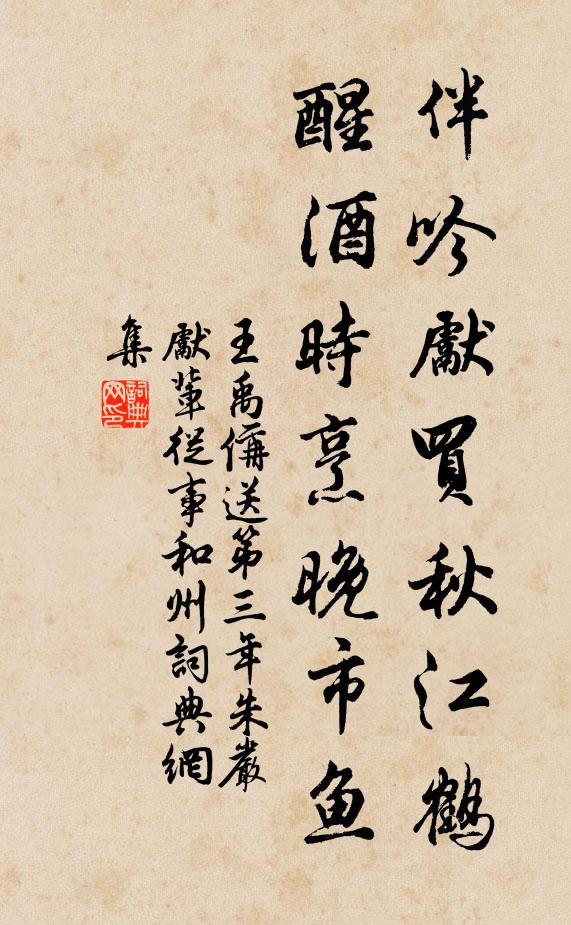 伴吟獻買秋江鶴
醒酒時烹晚市魚
王禹偁送第三年朱嚴
獻輩從事和州詞典網
集
詞典网印